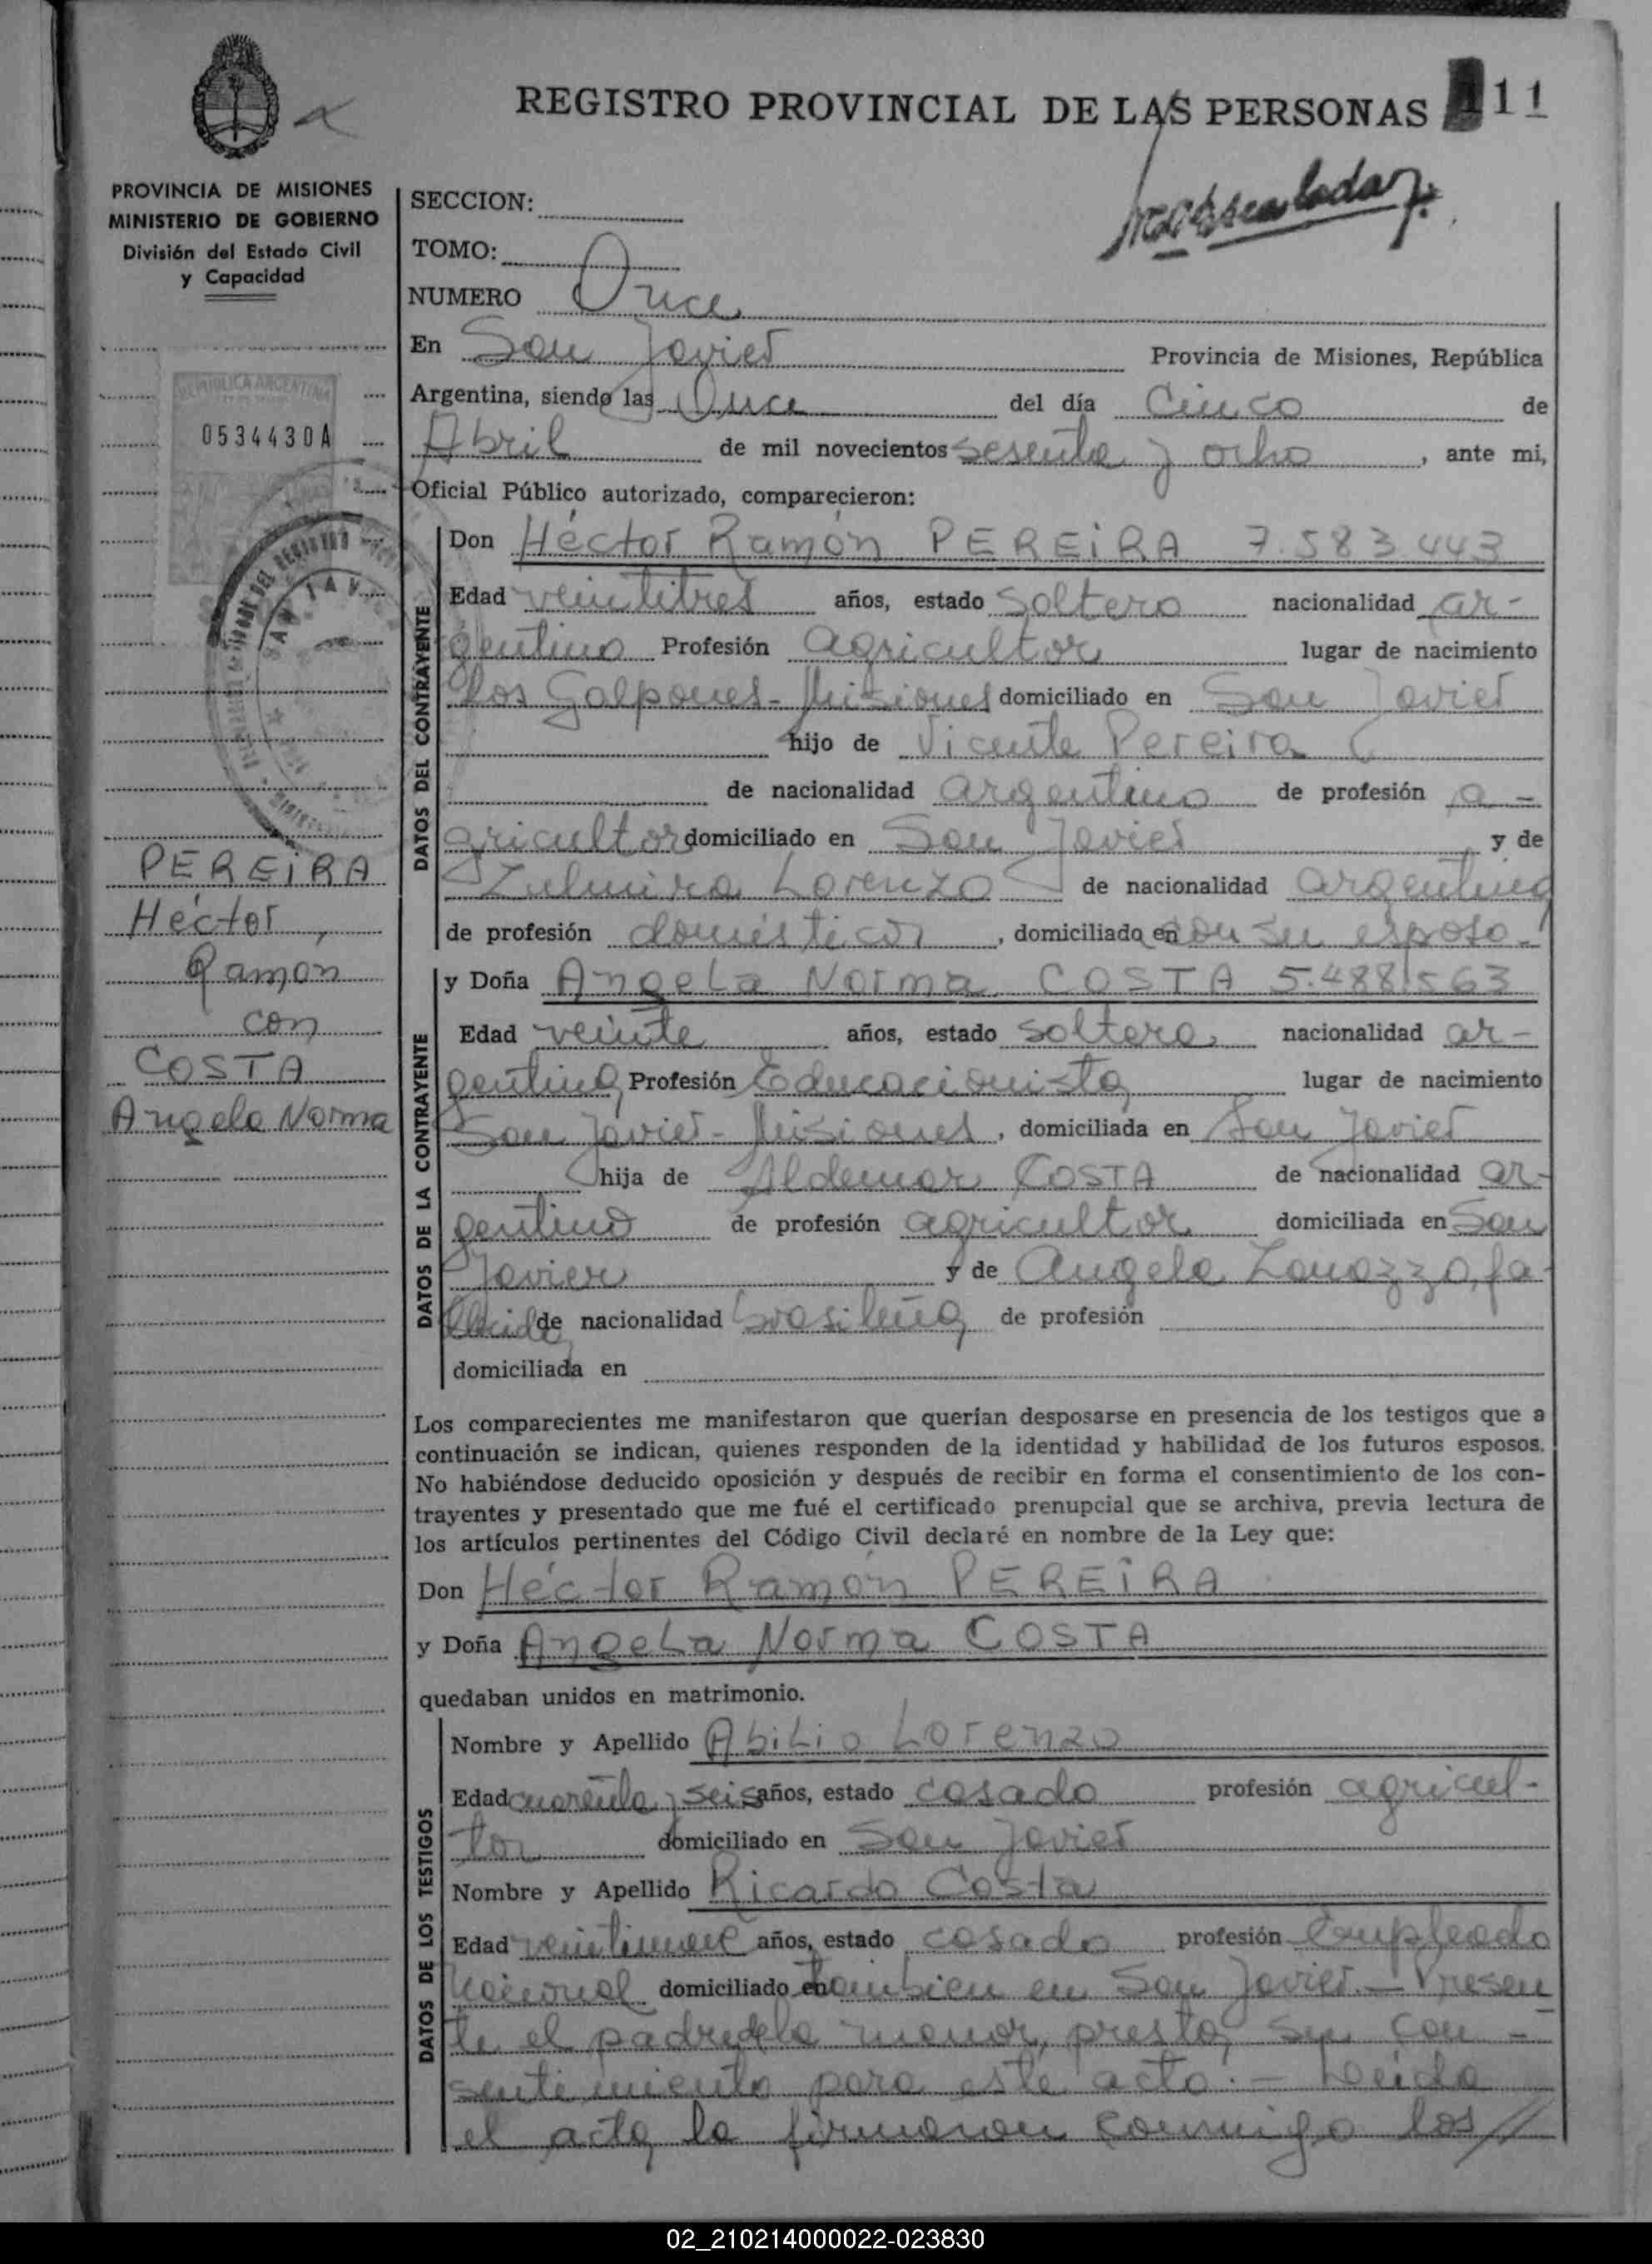 REGISTRO PROVINCIAL DE LAS PERSONAS 11
PROVINCIA DE MISIONES
MINISTERIO DE GOBIERNO
División del Estado Civil
y Capacidad
REPUBLICA ARGENTINA
0534430A
PEREIRA
Héctor,
Ramón
con
COSTA
Angela Norma
SECCION:
TOMO:
NUMERO Once
En San Javier Provincia de Misiones, República
Argentina, siendo las Once del día Cinco de
Abril de mil novecientos sesenta y ocho, ante mi,
Oficial Público autorizado, comparecieron:
DATOS DEL CONTRAYENTE
Don Héctor Ramón PEREIRA 7.583443
Edad veintitres años, estado Soltero nacionalidad ar-
gentino Profesión agricultor lugar de nacimiento
Los Galpones - Misiones domiciliado en San Javier
hijo de Vicente Pereira
de nacionalidad argentino de profesión a-
gricultor domiciliado en San Javier y de
Zulmira Lorenzo de nacionalidad argentina
de profesión domésticos, domiciliado en con su esposo.
DATOS DE LA CONTRAYENTE
y Doña Angela Norma COSTA 5.488.563
Edad veinte años, estado soltera nacionalidad ar-
gentina Profesión Educacionista lugar de nacimiento
San Javier - Misiones, domiciliada en San Javier
hija de Aldemar COSTA de nacionalidad ar-
gentino de profesión agricultor domiciliada en San
Javier y de Angela fa-
llecida de nacionalidad brasileña de profesión
domiciliada en
Los comparecientes me manifestaron que querían desposarse en presencia de los testigos que a
continuación se indican, quienes responden de la identidad y habilidad de los futuros esposos.
No habiéndose deducido oposición y después de recibir en forma el consentimiento de los con-
trayentes y presentado que me fué el certificado prenupcial que se archiva, previa lectura de
los artículos pertinentes del Código Civil declaré en nombre de la Ley que:
Don Héctor Ramón PEREIRA
y Doña Angela Norma COSTA
quedaban unidos en matrimonio.
DATOS DE LOS TESTIGOS
Nombre y Apellido Abilio Lorenzo
Edad cuarenta y seis años, estado casado profesión agricul-
tor domiciliado en San Javier
Nombre y Apellido Ricardo Costa
Edad veintinueve años, estado casado profesión Empleado
Nacional domiciliado en tambien en San Javier. - Presen
te el padre de la menor, presta su con-
sentimiento para este acto. - Leida
el acta la firmaron conmigo los //
02_210214000022-023830